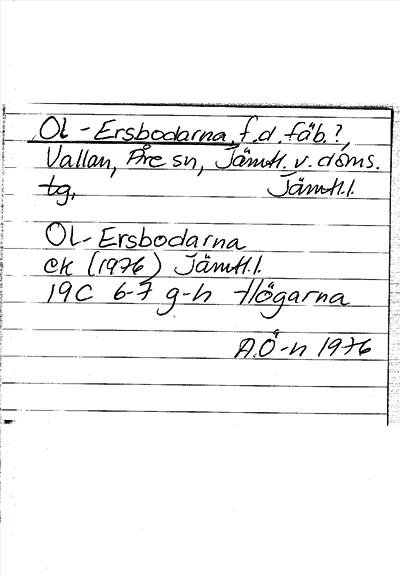 Ol-Ersbodarna, f.d. fäb.?,
Vallan, Åre sn, Jämtl. v. doms.
tg, Jämtl.l.
Ol-Ersbodarna
ek (1976) Jämtl.l.
19C 6-7 g-h Högarna
A.Ö-n 1976